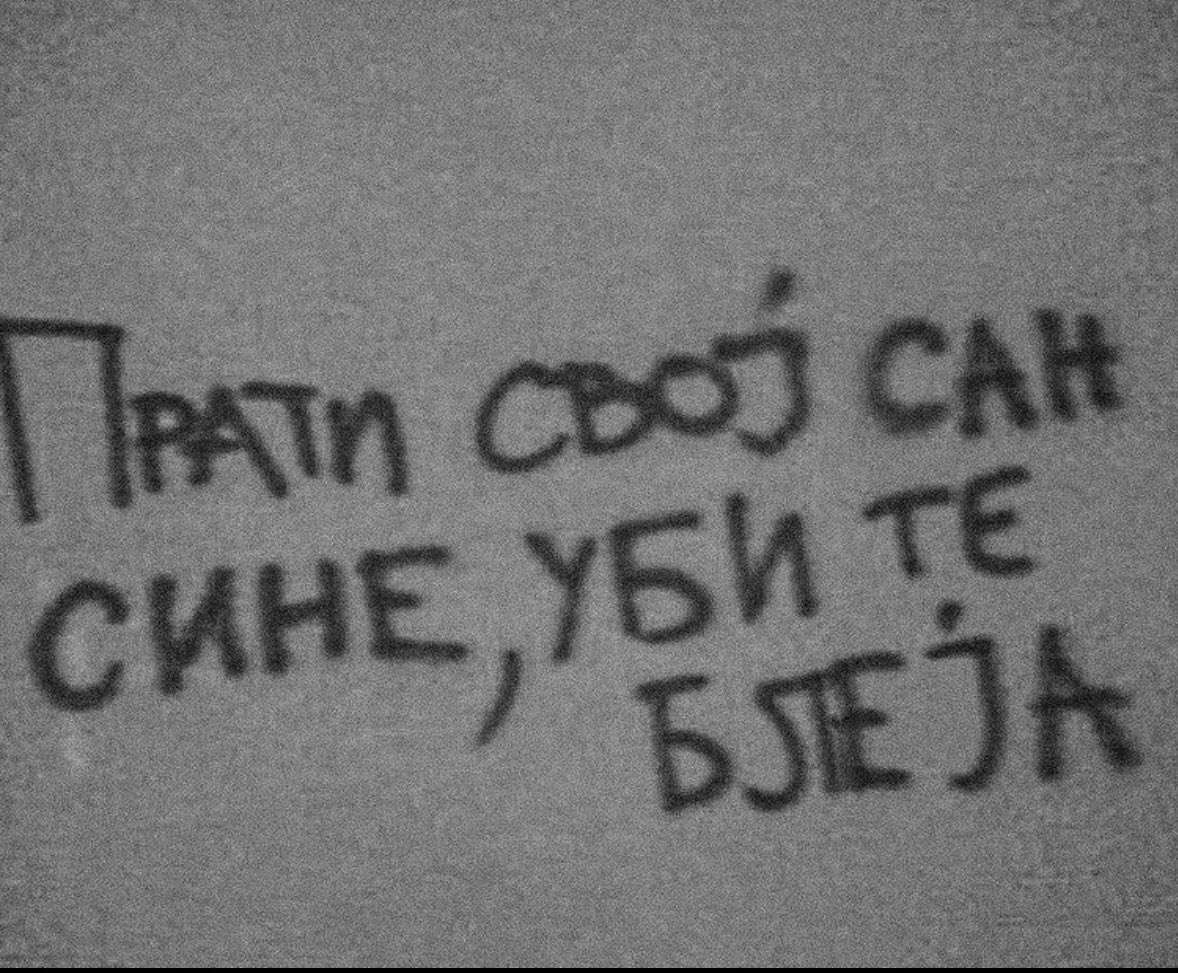 ПРАТИ СВОЈ САН
СИНЕ, УБИ ТЕ
БЛЕЈА